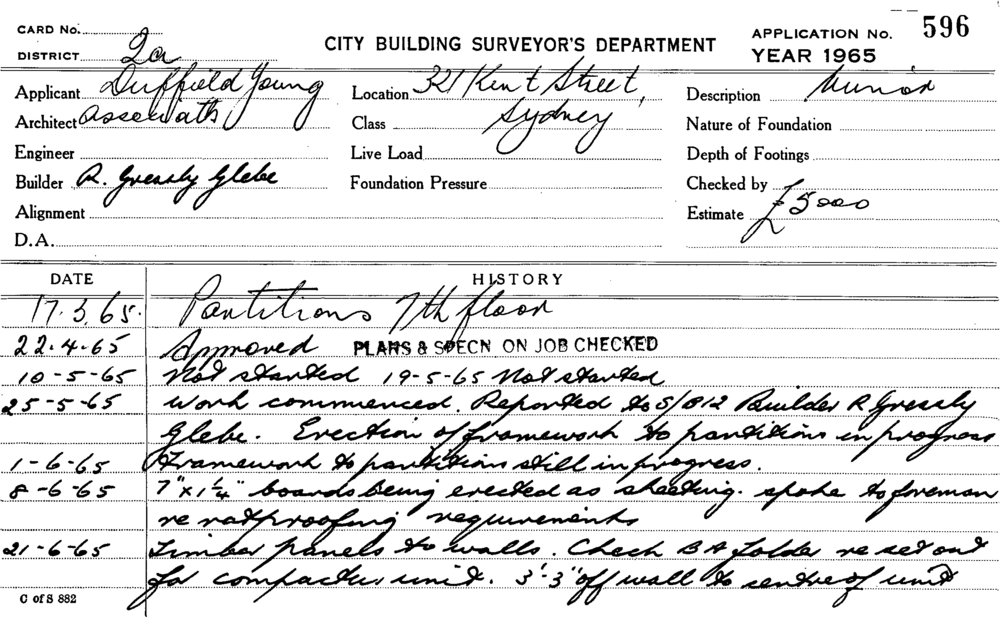 596
CARD No.
DISTRICT 2a
CITY BUILDING SURVEYOR'S DEPARTMENT
APPLICATION No.
YEAR 1965
Applicant Duffield Young
Location 321 Kent Street,
Description
Architect
Class Sydney
Nature of Foundation
Engineer
Live Load
Depth of Footings
Builder R. Gressly Glebe
Foundation Pressure
Checked by
Alignment
Estimate £5000
D.A.
DATE HISTORY
17.3.65. Partitions 7th floor
22.4.65 Approved PLANS & SPECN ON JOB CHECKED
10-5-65 Not started 19-5-65 Not started
25-5-65 Work commenced. Reported to S/812 Builder R Gressly
Glebe. Erection of framework to partitions in progress
1-6-65 Framework to partitions still in progress.
8-6-65 7"x1¼" boards being erected as sheeting. spoke to foreman
re ratproofing requirements
21-6-65 Timber panels to walls. Check BA folder re set out
for compactus unit. 3'-3" off wall to centre of unit
C of S 882